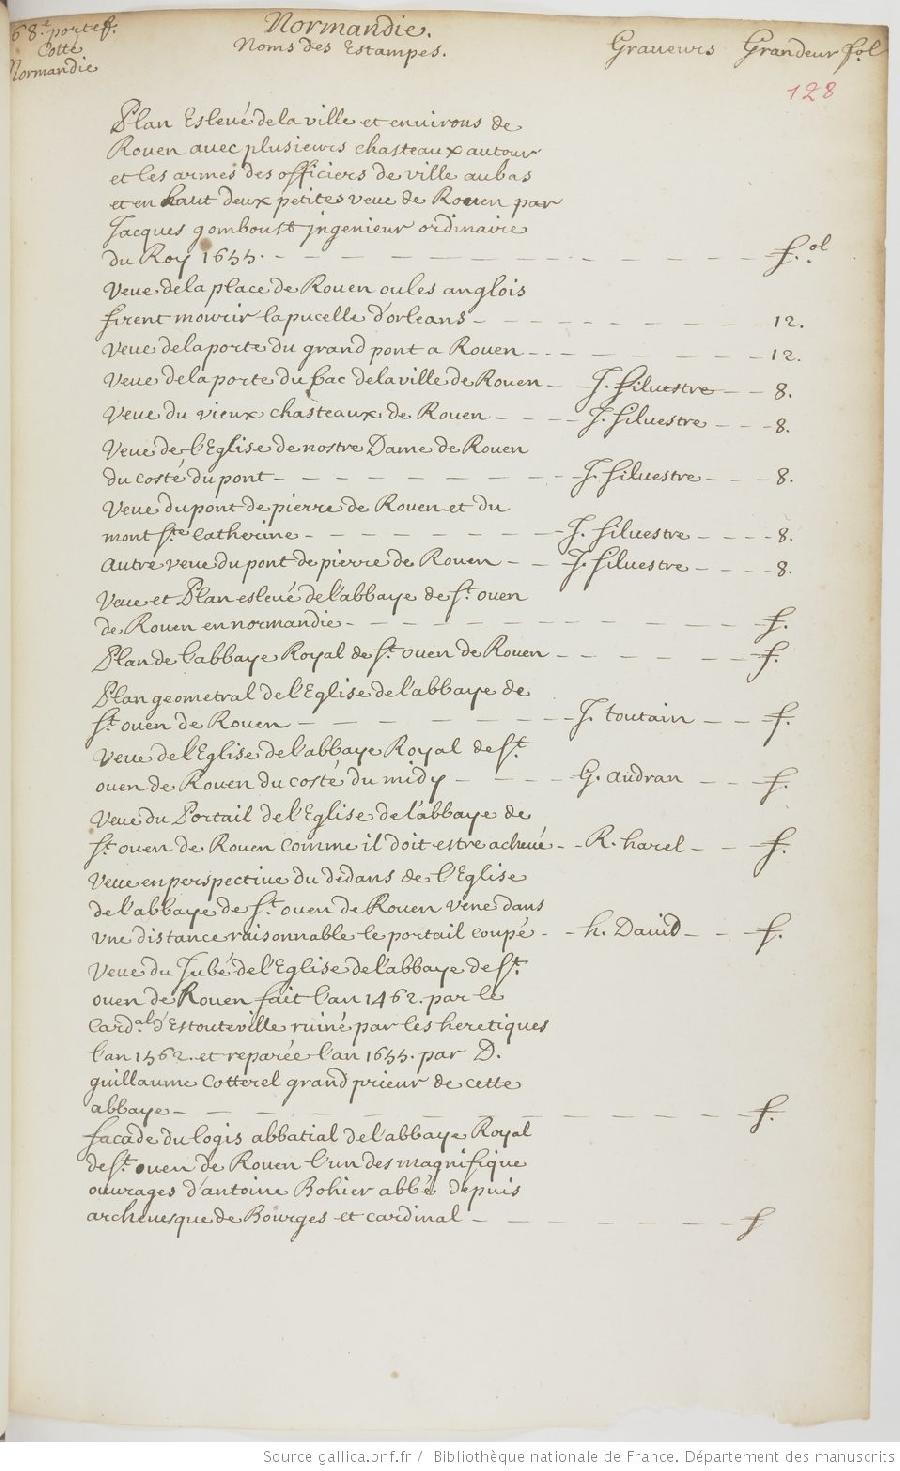 68.e portef.
Cotté
Normandie
Normandie.
Noms des Estampes. Graveurs Grandeur fol
128
Plan Eslevé de la ville et environs de
Rouen avec plusieurs chasteaux autour
et les armes des officiers de ville au bas
et en haut deux petites veue de Rouen par
Jacques gomboust jngenieur ordinaire
du Roy 1655. f.ol
Veue de la place de Rouen ou les anglois
firent mourir la pucelle d'orleans 12.
Veue de la porte du grand pont a Rouen 12.
Veue de la porte du bac de la ville de Rouen J. Silvestre 8.
Veue du vieux chasteaux de Rouen J. Silvestre 8.
Veue de l'Eglise de nostre Dame de Rouen
du costé du pont J. Silvestre 8.
Veue du pont de pierre de Rouen et du
mont Ste Catherine J. Silvestre 8.
autre veue du pont de pierre de Rouen J. Silvestre 8.
Veue et Plan eslevé de l'abbaye de St. ouen
de Rouen en normandie f.
Plan de l'abbaye Royal de St. ouen de Rouen f.
Plan geometral de l'Eglise de l'abbaye de
St. ouen de Rouen J. toutain f.
Veue de l'Eglise de l'abbaye Royal de St.
ouen de Rouen du costé du midy G. audran f.
Veue du Portail de l'Eglise de l'abbaye de
St. ouen de Rouen comme il doit estre achevé R. harel f.
Veue en perspective du dedans de l'Eglise
de l'abbaye de St. ouen de Rouen veue dans
vne distance raisonnable le portail coupé h. David f.
Veue du Jubé de l'Eglise de l'abbaye de St.
ouen de Rouen fait l'an 1462. par le
Card.al d'Estouteville ruiné par les heretiques
l'an 1562. et reparée l'an 1655. par D.
guillaume Cotterel grand prieur de cette
abbaye f.
facade du logis abbatial de l'abbaye Royal
de St. ouen de Rouen l'un des magnifique
ouvrages d'antoine Bohier abbé depuis
archevesque de Bourges et cardinal f
Source gallica.bnf.fr / Bibliothèque nationale de France. Département des manuscrits